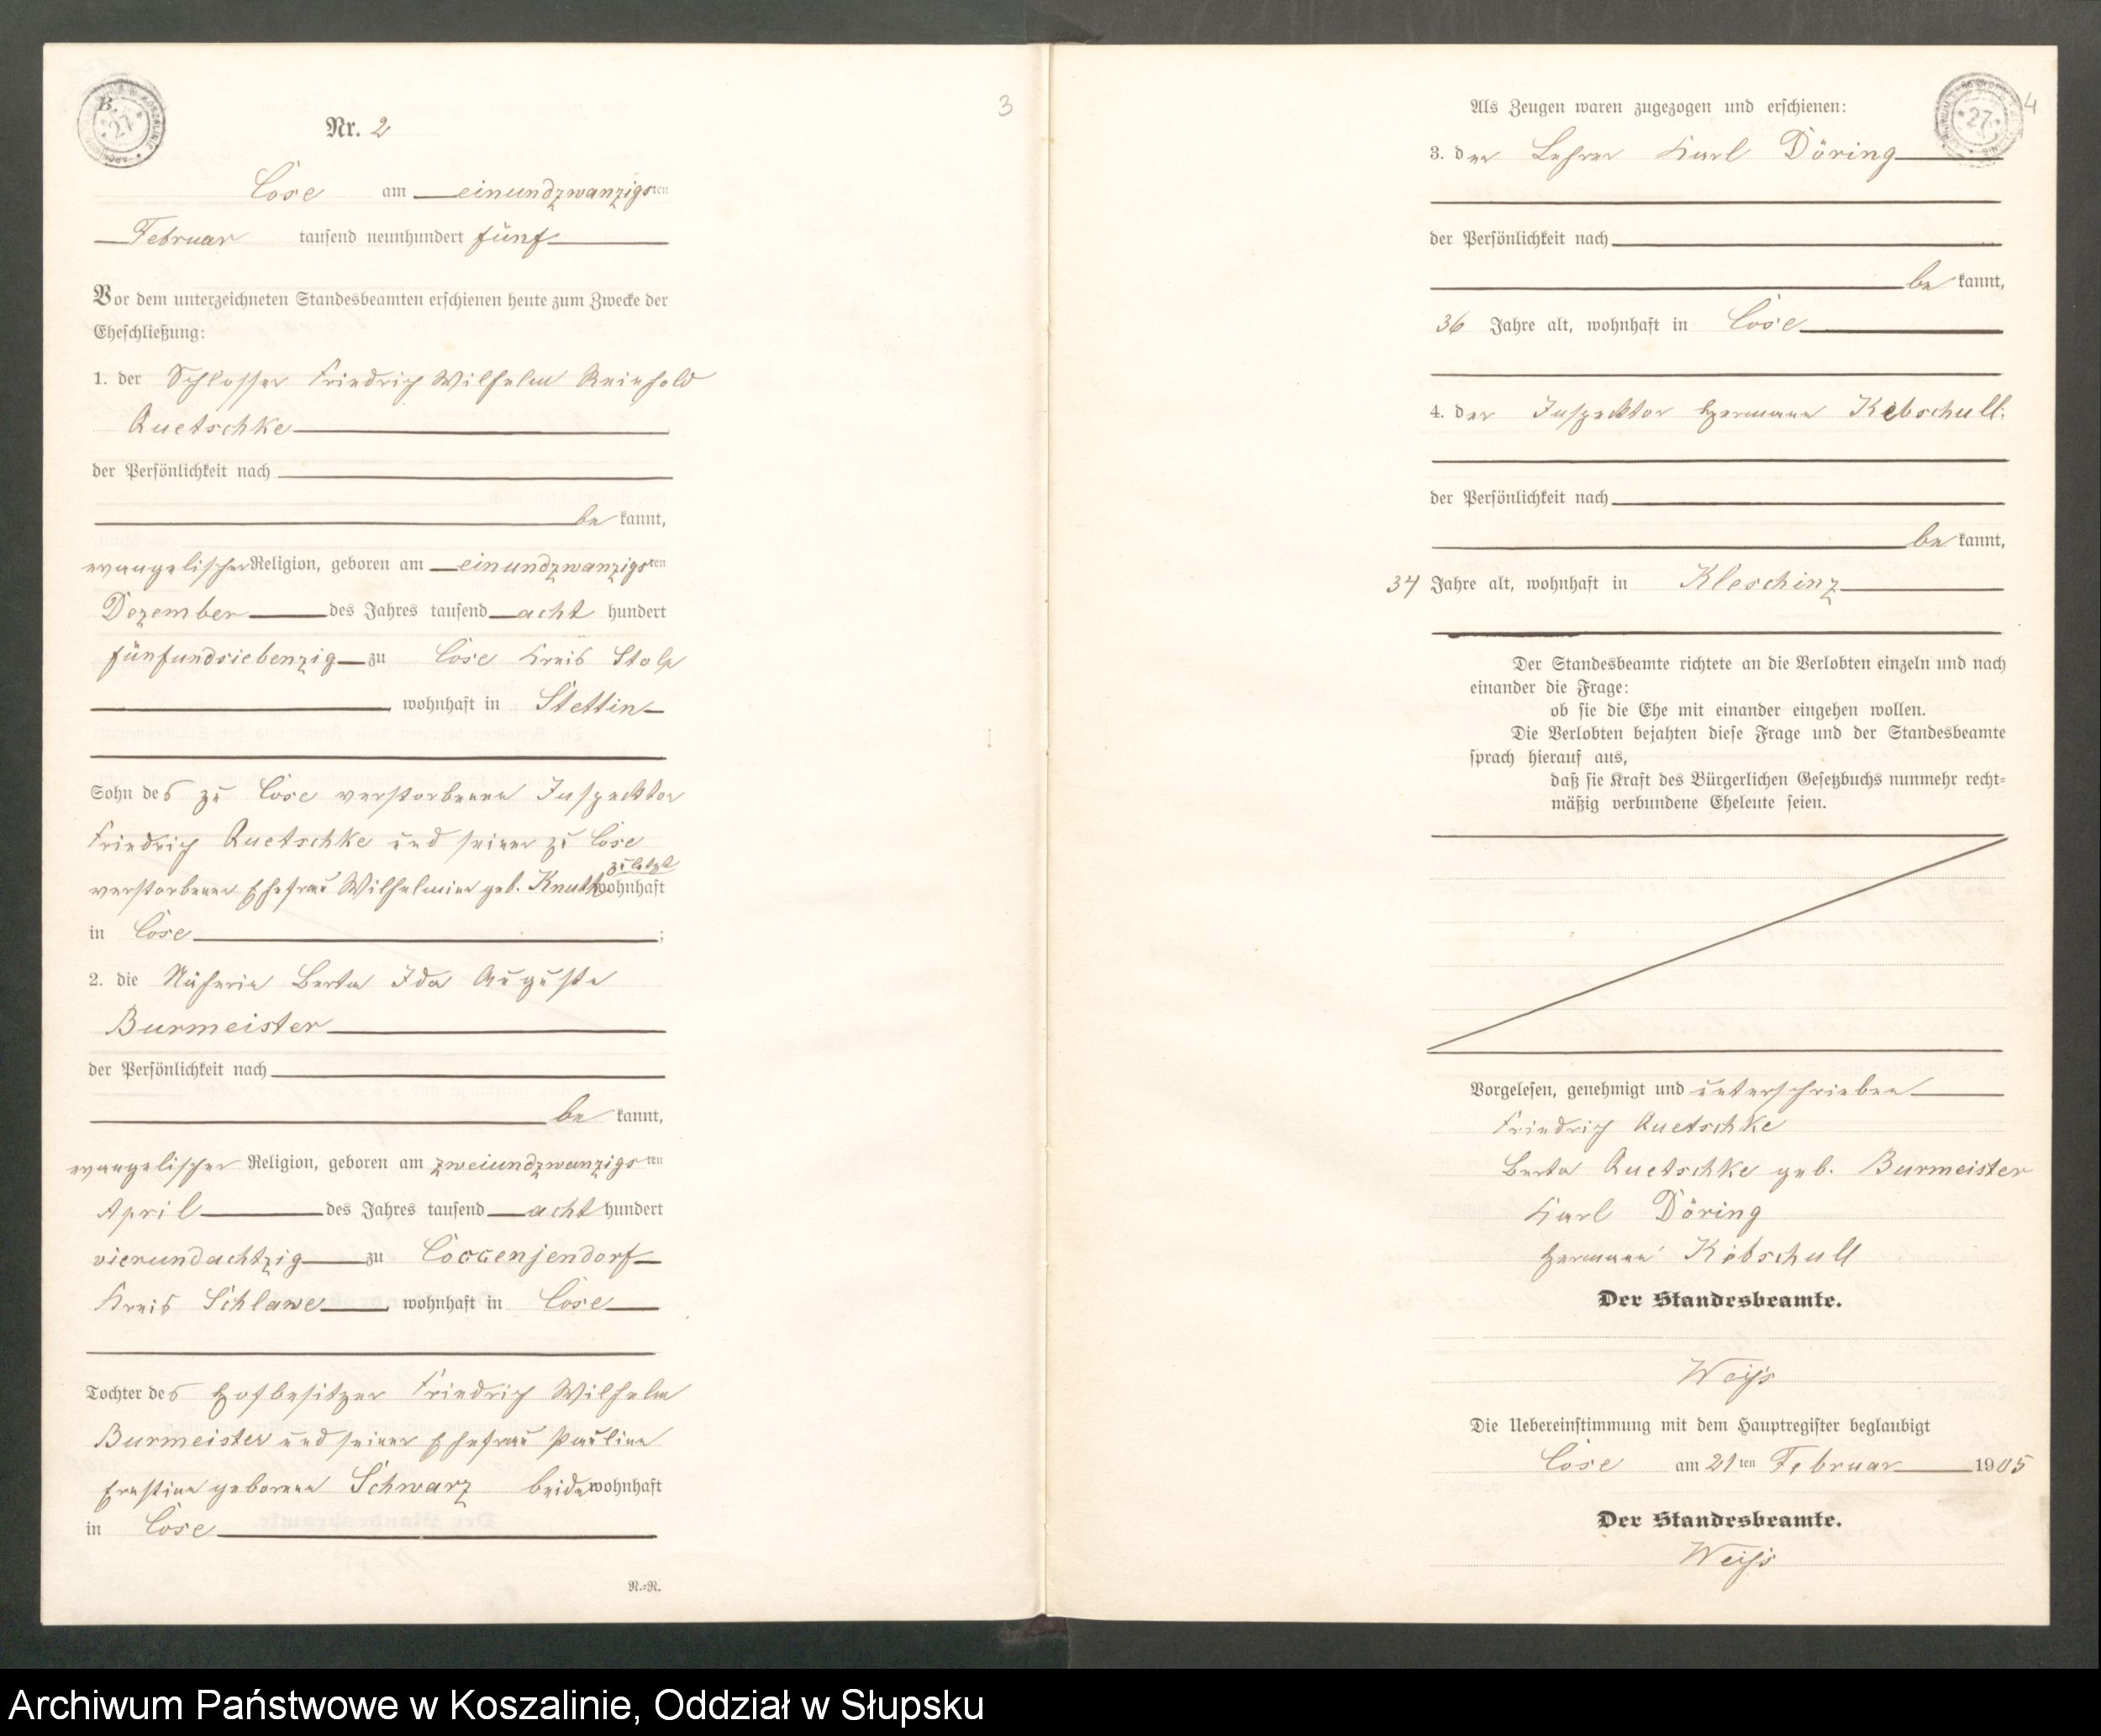 B.
27
3
Nr. 2
Cose am einundzwanzigsten
Februar tausend neunhundert fünf
Vor dem unterzeichneten Standesbeamten erschienen heute zum Zwecke der
Eheschließung:
1. der Schlosser Friedrich Wilhelm Reinhold
Quetschke
der Persönlichkeit nach
be kannt,
evangelischer Religion, geboren am einundzwanzigsten
Dezember des Jahres tausend acht hundert
fünfundsiebenzig zu Cose Kreis Stolp
, wohnhaft in Stettin
Sohn des zu Cose verstorbenen Inspecktor
Friedrich Quetschke und seiner zu Cose
zuletzt
verstorbenen Ehefrau Wilhelmine geb. Knuth wohnhaft
in Cose ;
2. die Näherin Berta Ida Auguste
Burmeister
der Persönlichkeit nach
be kannt,
evangelischer Religion, geboren am zweiundzwanzigsten
April des Jahres tausend acht hundert
vierundachtzig zu
Kreis Schlawe , wohnhaft in Cose
Tochter des Hofbesitzer Friedrich Wilhelm
Burmeister und seiner Ehefrau Pauline
Ernstine geborenen Schwarz beide wohnhaft
in Cose
N.=R.
27
4
Als Zeugen waren zugezogen und erschienen:
3. der Lehrer Karl Döring
der Persönlichkeit nach
be kannt,
36 Jahre alt, wohnhaft in Cose
4. der Inspecktor Hermann Kebschull.
der Persönlichkeit nach
be kannt,
34 Jahre alt, wohnhaft in Kleschinz
Der Standesbeamte richtete an die Verlobten einzeln und nach
einander die Frage:
ob sie die Ehe mit einander eingehen wollen.
Die Verlobten bejahten diese Frage und der Standesbeamte
sprach hierauf aus,
daß sie Kraft des Bürgerlichen Gesetzbuchs nunmehr recht=
mäßig verbundene Eheleute seien.
Vorgelesen, genehmigt und unterschrieben
Friedrich Quetschke
Berta Quetschke geb. Burmeister
Karl Döring
Hermann Kebschull
Der Standesbeamte.
Weiß
Die Uebereinstimmung mit dem Hauptregister beglaubigt
Cose am 21ten Februar 1905
Der Standesbeamte.
Weiß
Archiwum Państwowe w Koszalinie, Oddział w Słupsku